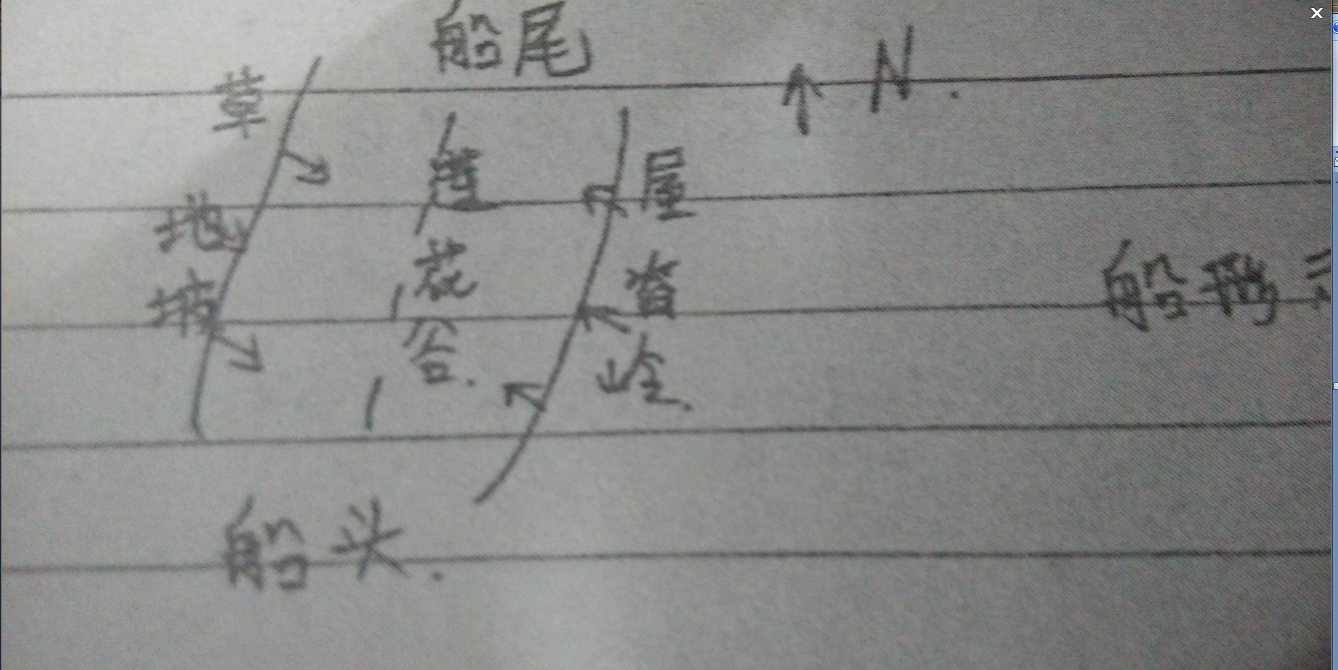 船尾
N.
草地坡
花谷.
屋
岭.
船形
船头.